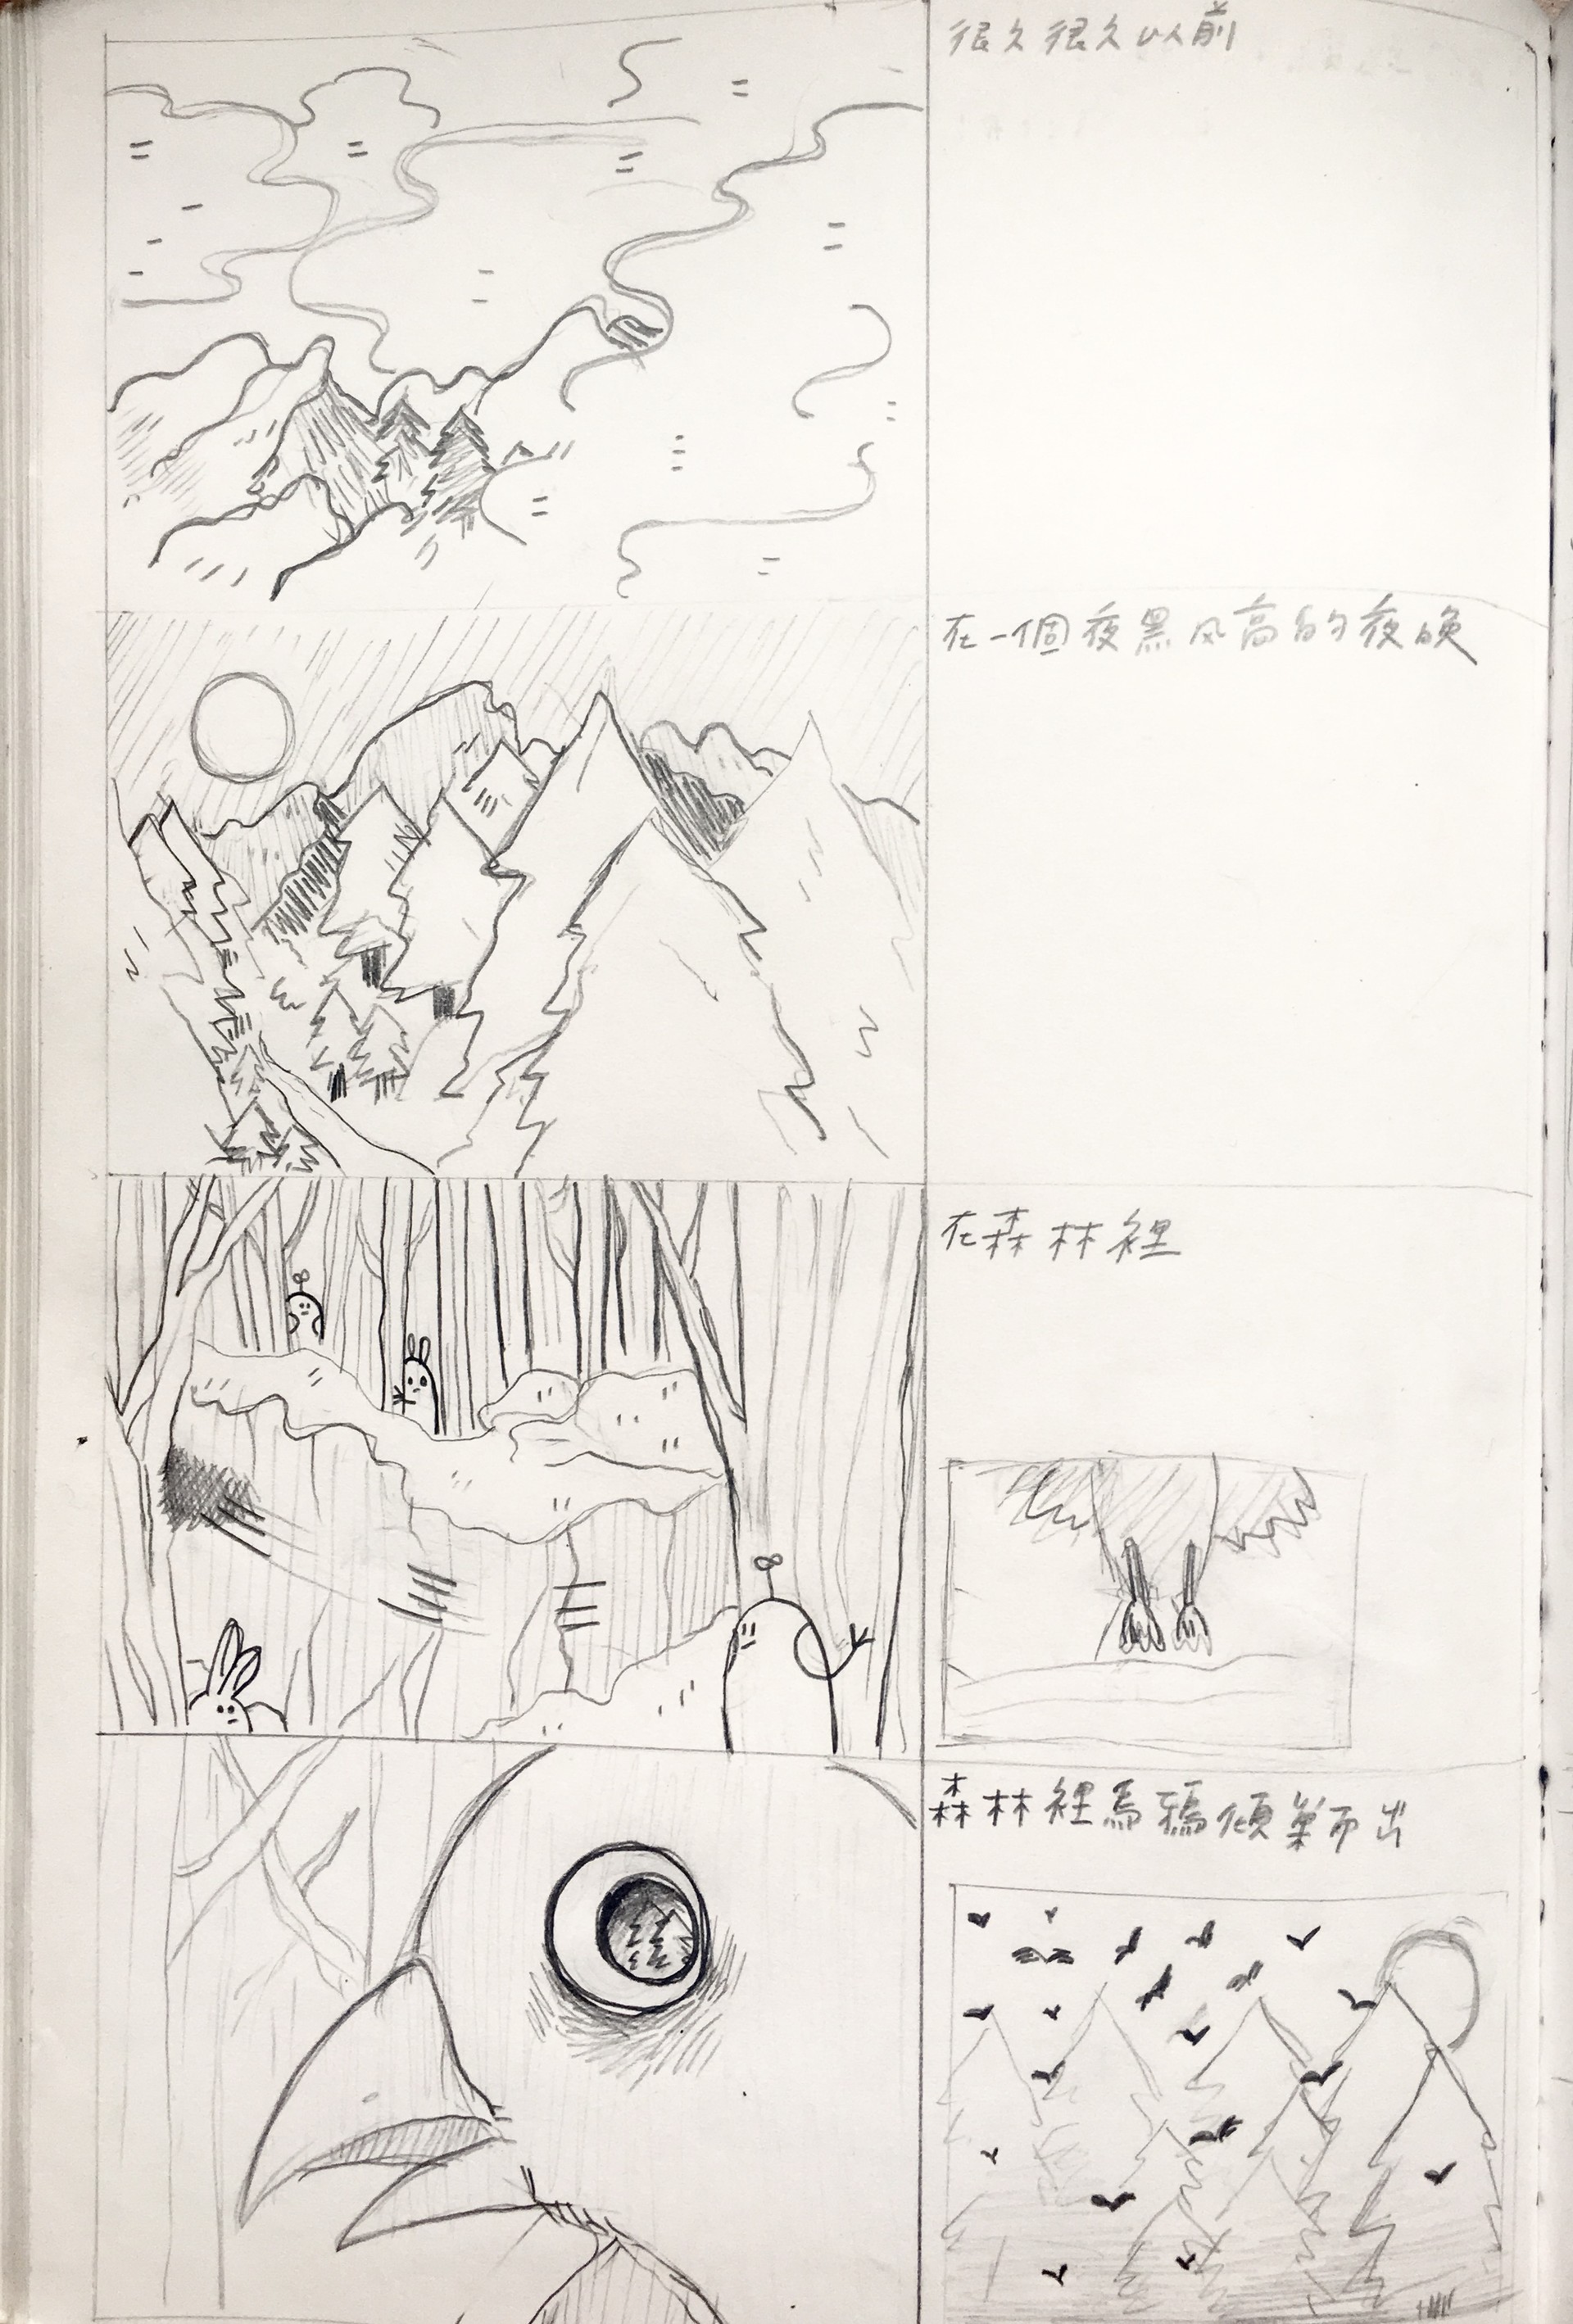 很久很久以前
在一個夜黑风高的夜晚
在森林裡
森林裡烏鴉傾巢而出